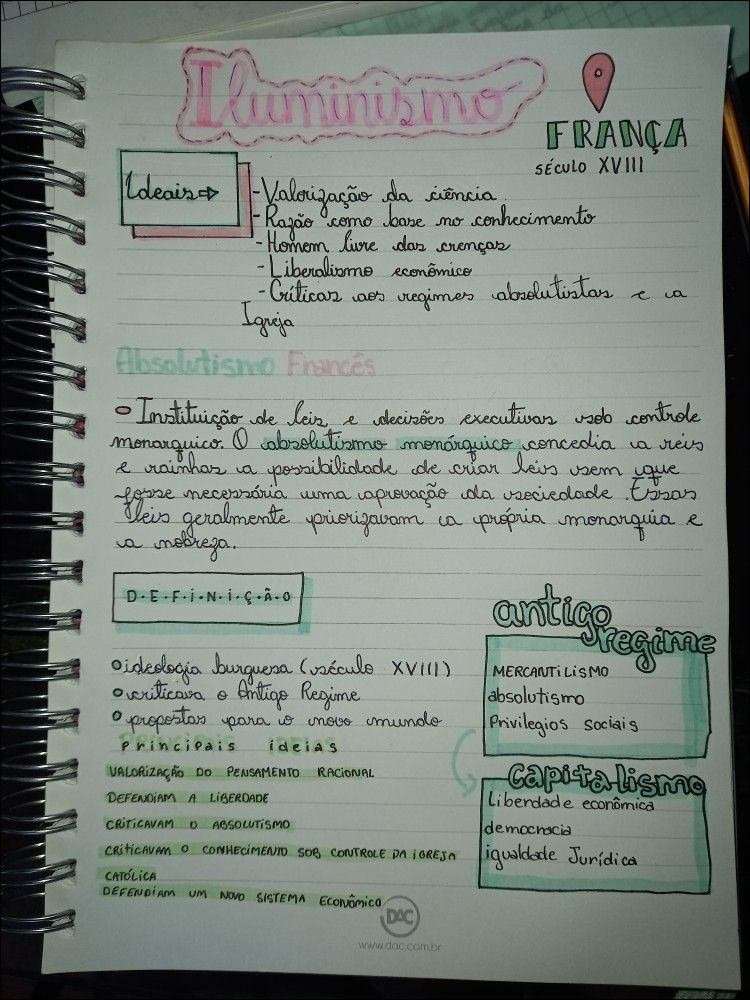 Iluminismo
FRANÇA
SÉCULO XVIII
Ideais⇒
-Valorização da ciência
-Razão como base no conhecimento
-Homem livre das crenças
-Liberalismo econômico
-Críticas aos regimes absolutistas e a
Igreja
Absolutismo Francês
Instituição de leis e decisões executivas sob controle
monarquico. O absolutismo monárquico concedia a reis
e rainhas a possibilidade de criar leis sem que
fosse necessária uma aprovação da sociedade. Essas
leis geralmente priorizavam a própria monarquia e
a nobreza.
D·E·F·I·N·I·Ç·Ã·O
ideologia burguesa (século XVIII)
criticava o Antigo Regime
propostas para o novo mundo
principais ideias
VALORIZAÇÃO DO PENSAMENTO RACIONAL
DEFENDIAM A LIBERDADE
CRITICAVAM O ABSOLUTISMO
CRITICAVAM O CONHECIMENTO SOB CONTROLE DA IGREJA
CATÓLICA
DEFENDIAM UM NOVO SISTEMA ECONÔMICO
antigo
regime
MERCANTILISMO
absolutismo
Privilegios sociais
capitalismo
Liberdade econômica
democracia
igualdade Jurídica
DAC
www.dac.com.br